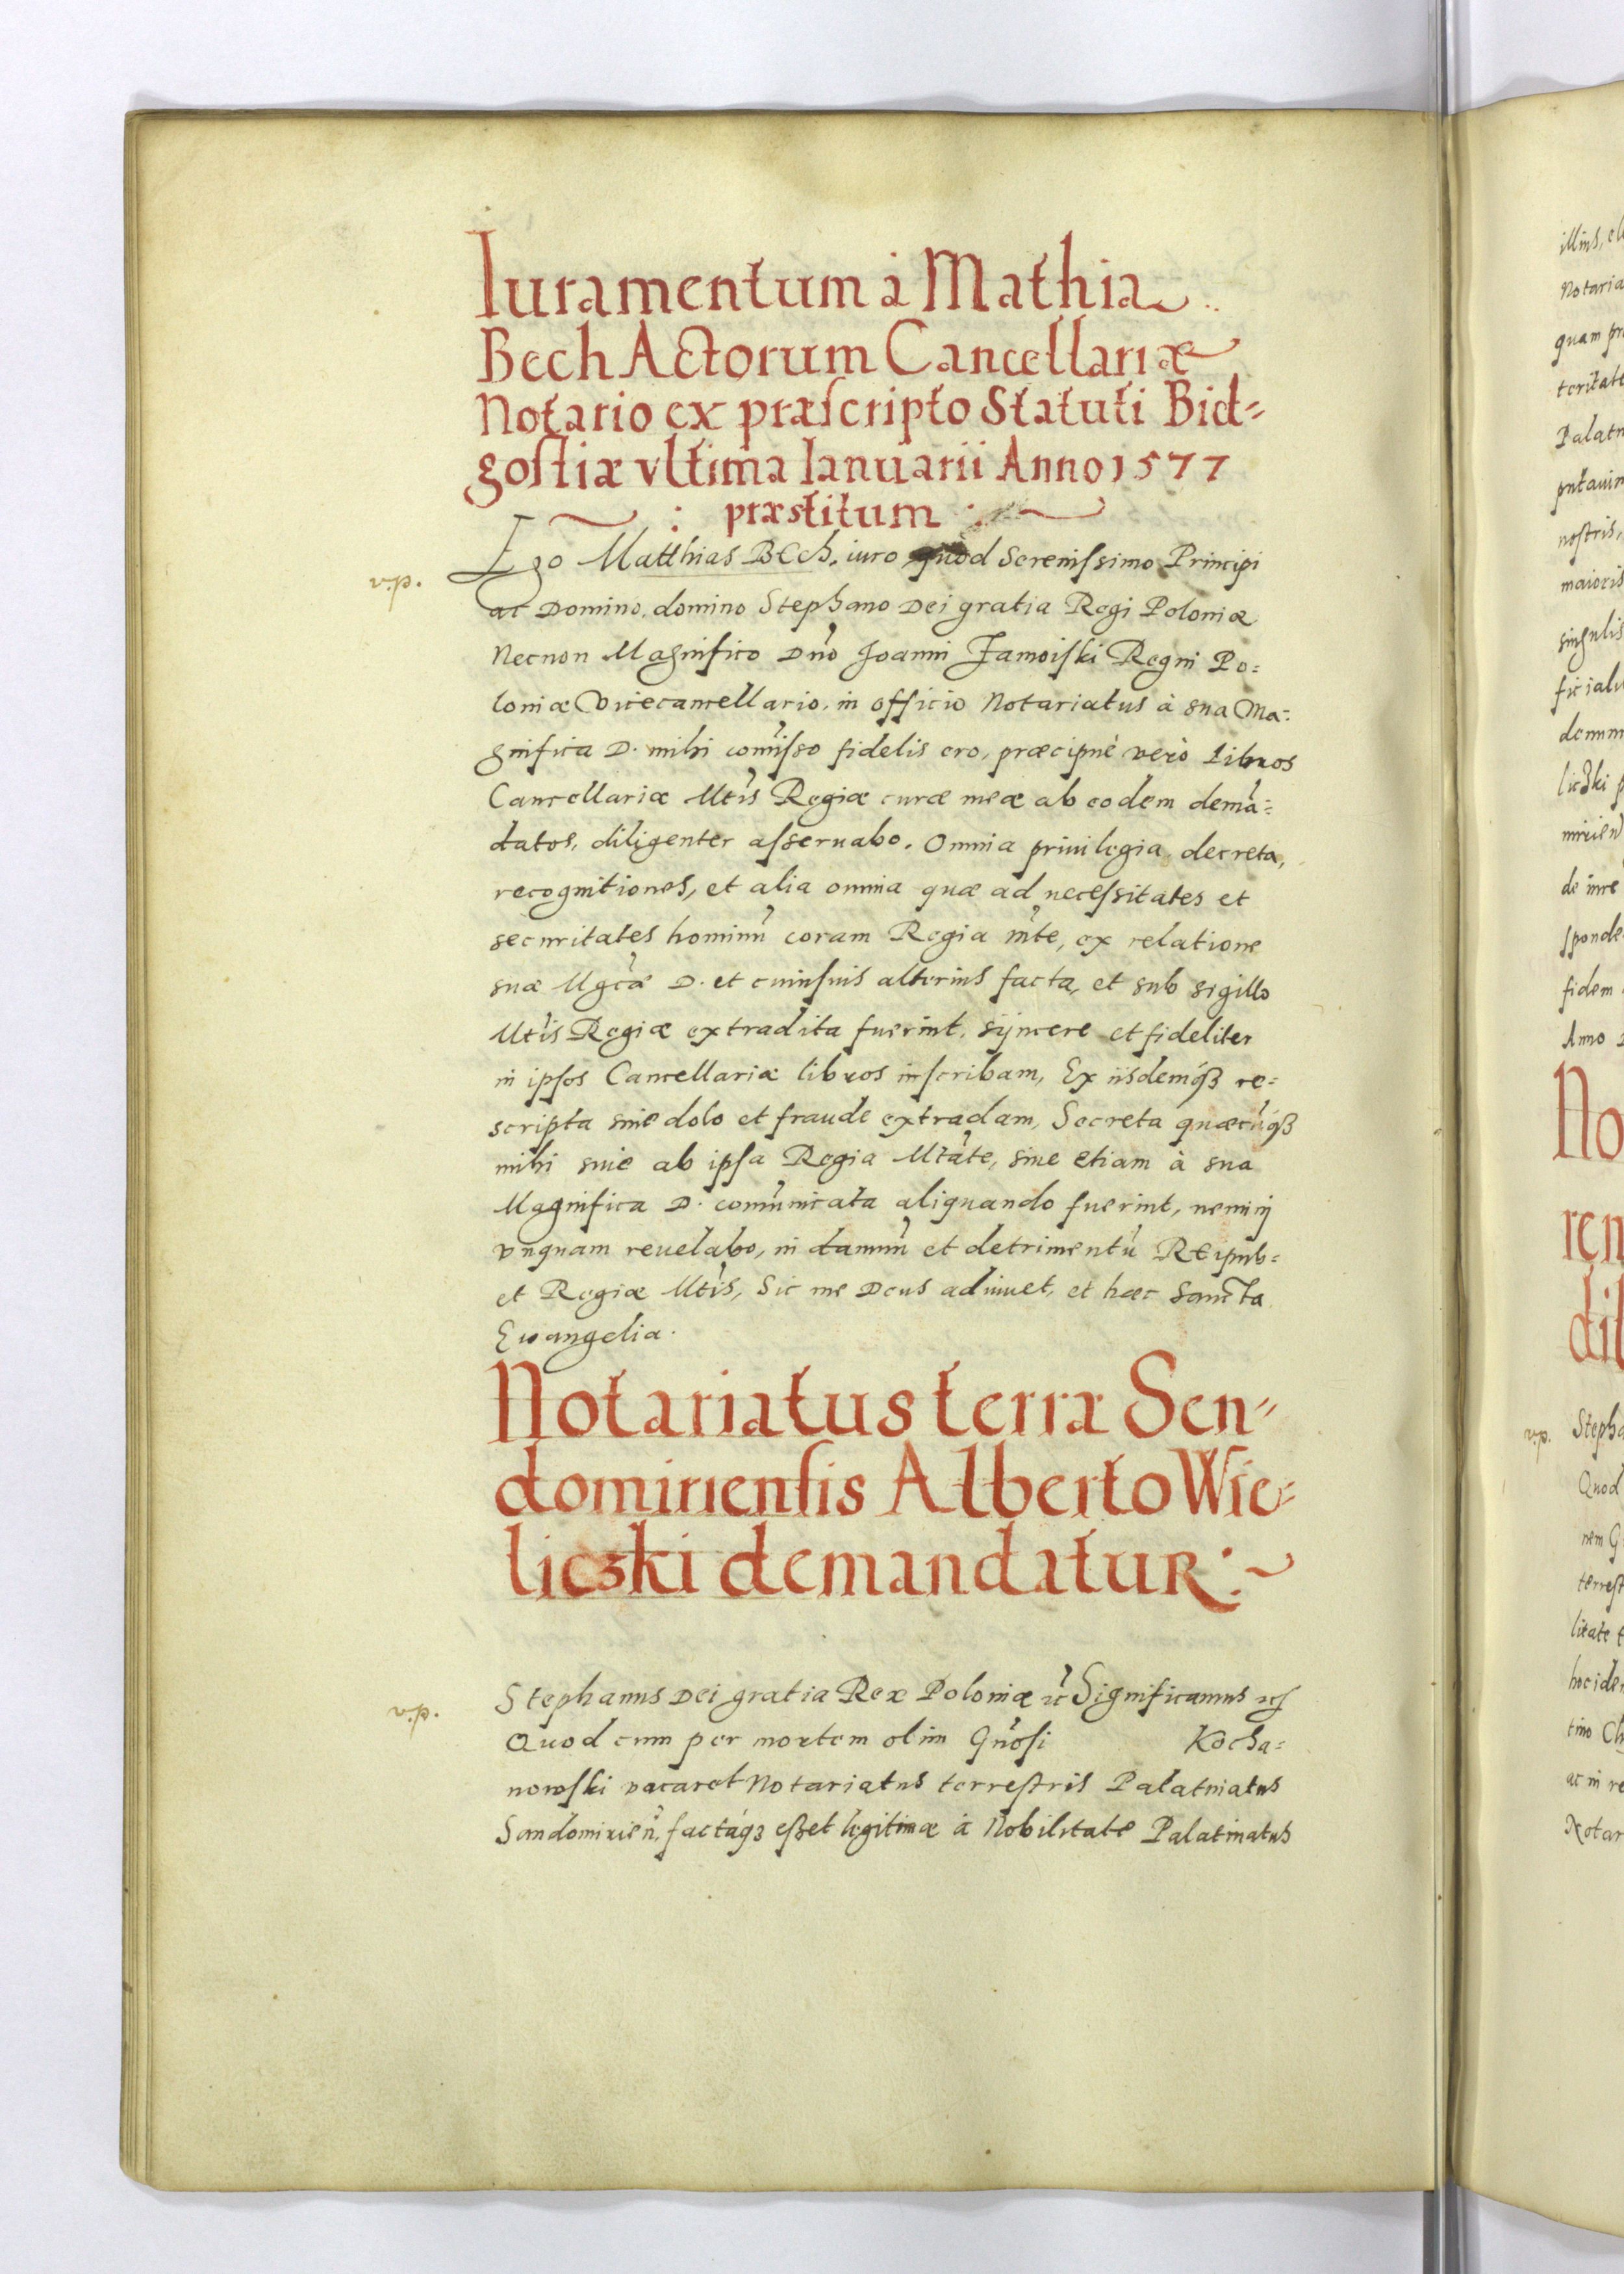 Iuramentum à Mathia
Bech Actorum Cancellariæ
Notario ex præſcripto Statuti Bid=
goſtiæ vltima Ianuarii Anno 1577
: præstitum :
v.p.
Ego Matthias BEch. iuro quòd Sereniſsimo Principi
ac Domino. domino Stephano Dei gratia Regi Poloniæ
Necnon Magnifico Dno Joanni Zamoiſki Regni Po=
loniæ Vicecancellario. in officio Notariatus à sua Ma=
gnifica D. mihi comisso fidelis ero, præcipuè verò Libros
Cancellariæ Mtis Regiæ curæ meæ ab eodem dema=
datos, diligenter aſseruabo. Omnia priuilegia, decreta,
recognitiones, et alia omnia quæ ad neceſsitates et
securitates hominu coram Regia mte, ex relatione
suæ Mgcæ D. et cuiuſuis alterius facta, et sub sigillo
Mtis Regiæ extradita fuerint, sÿncere et fideliter
in ipſos Cancellariæ libros inſcribam, Ex iisdemq́ꝫ re=
scripta sine dolo et fraude extradam, Secreta quæcúq́ꝫ
mihi siue ab ipſa Regia Mtate, siue etiam à sua
Magnifica D. comunicata aliquando fuerint, neminj
vnquam reuelabo, in damnu et detrimentu REipub=
et Regiæ Mtis, Sic me Deus adiuuet, et hæc Sancta
Ewangelia.
Notariatus terræ Sen=
domiriensis Alberto Wie=
liczki demandatur :~
v.p.
Stephanus Dei gratia Rex Poloniæ ꝛc Significamus ꝛc
Quod cum per mortem olim Gnosi Kocha=
nowſki vacaret Notariatus terreſtris Palatinatus
Sandomirien, factáq́ꝫ eſset legitimæ à Nobilitate Palatinatus